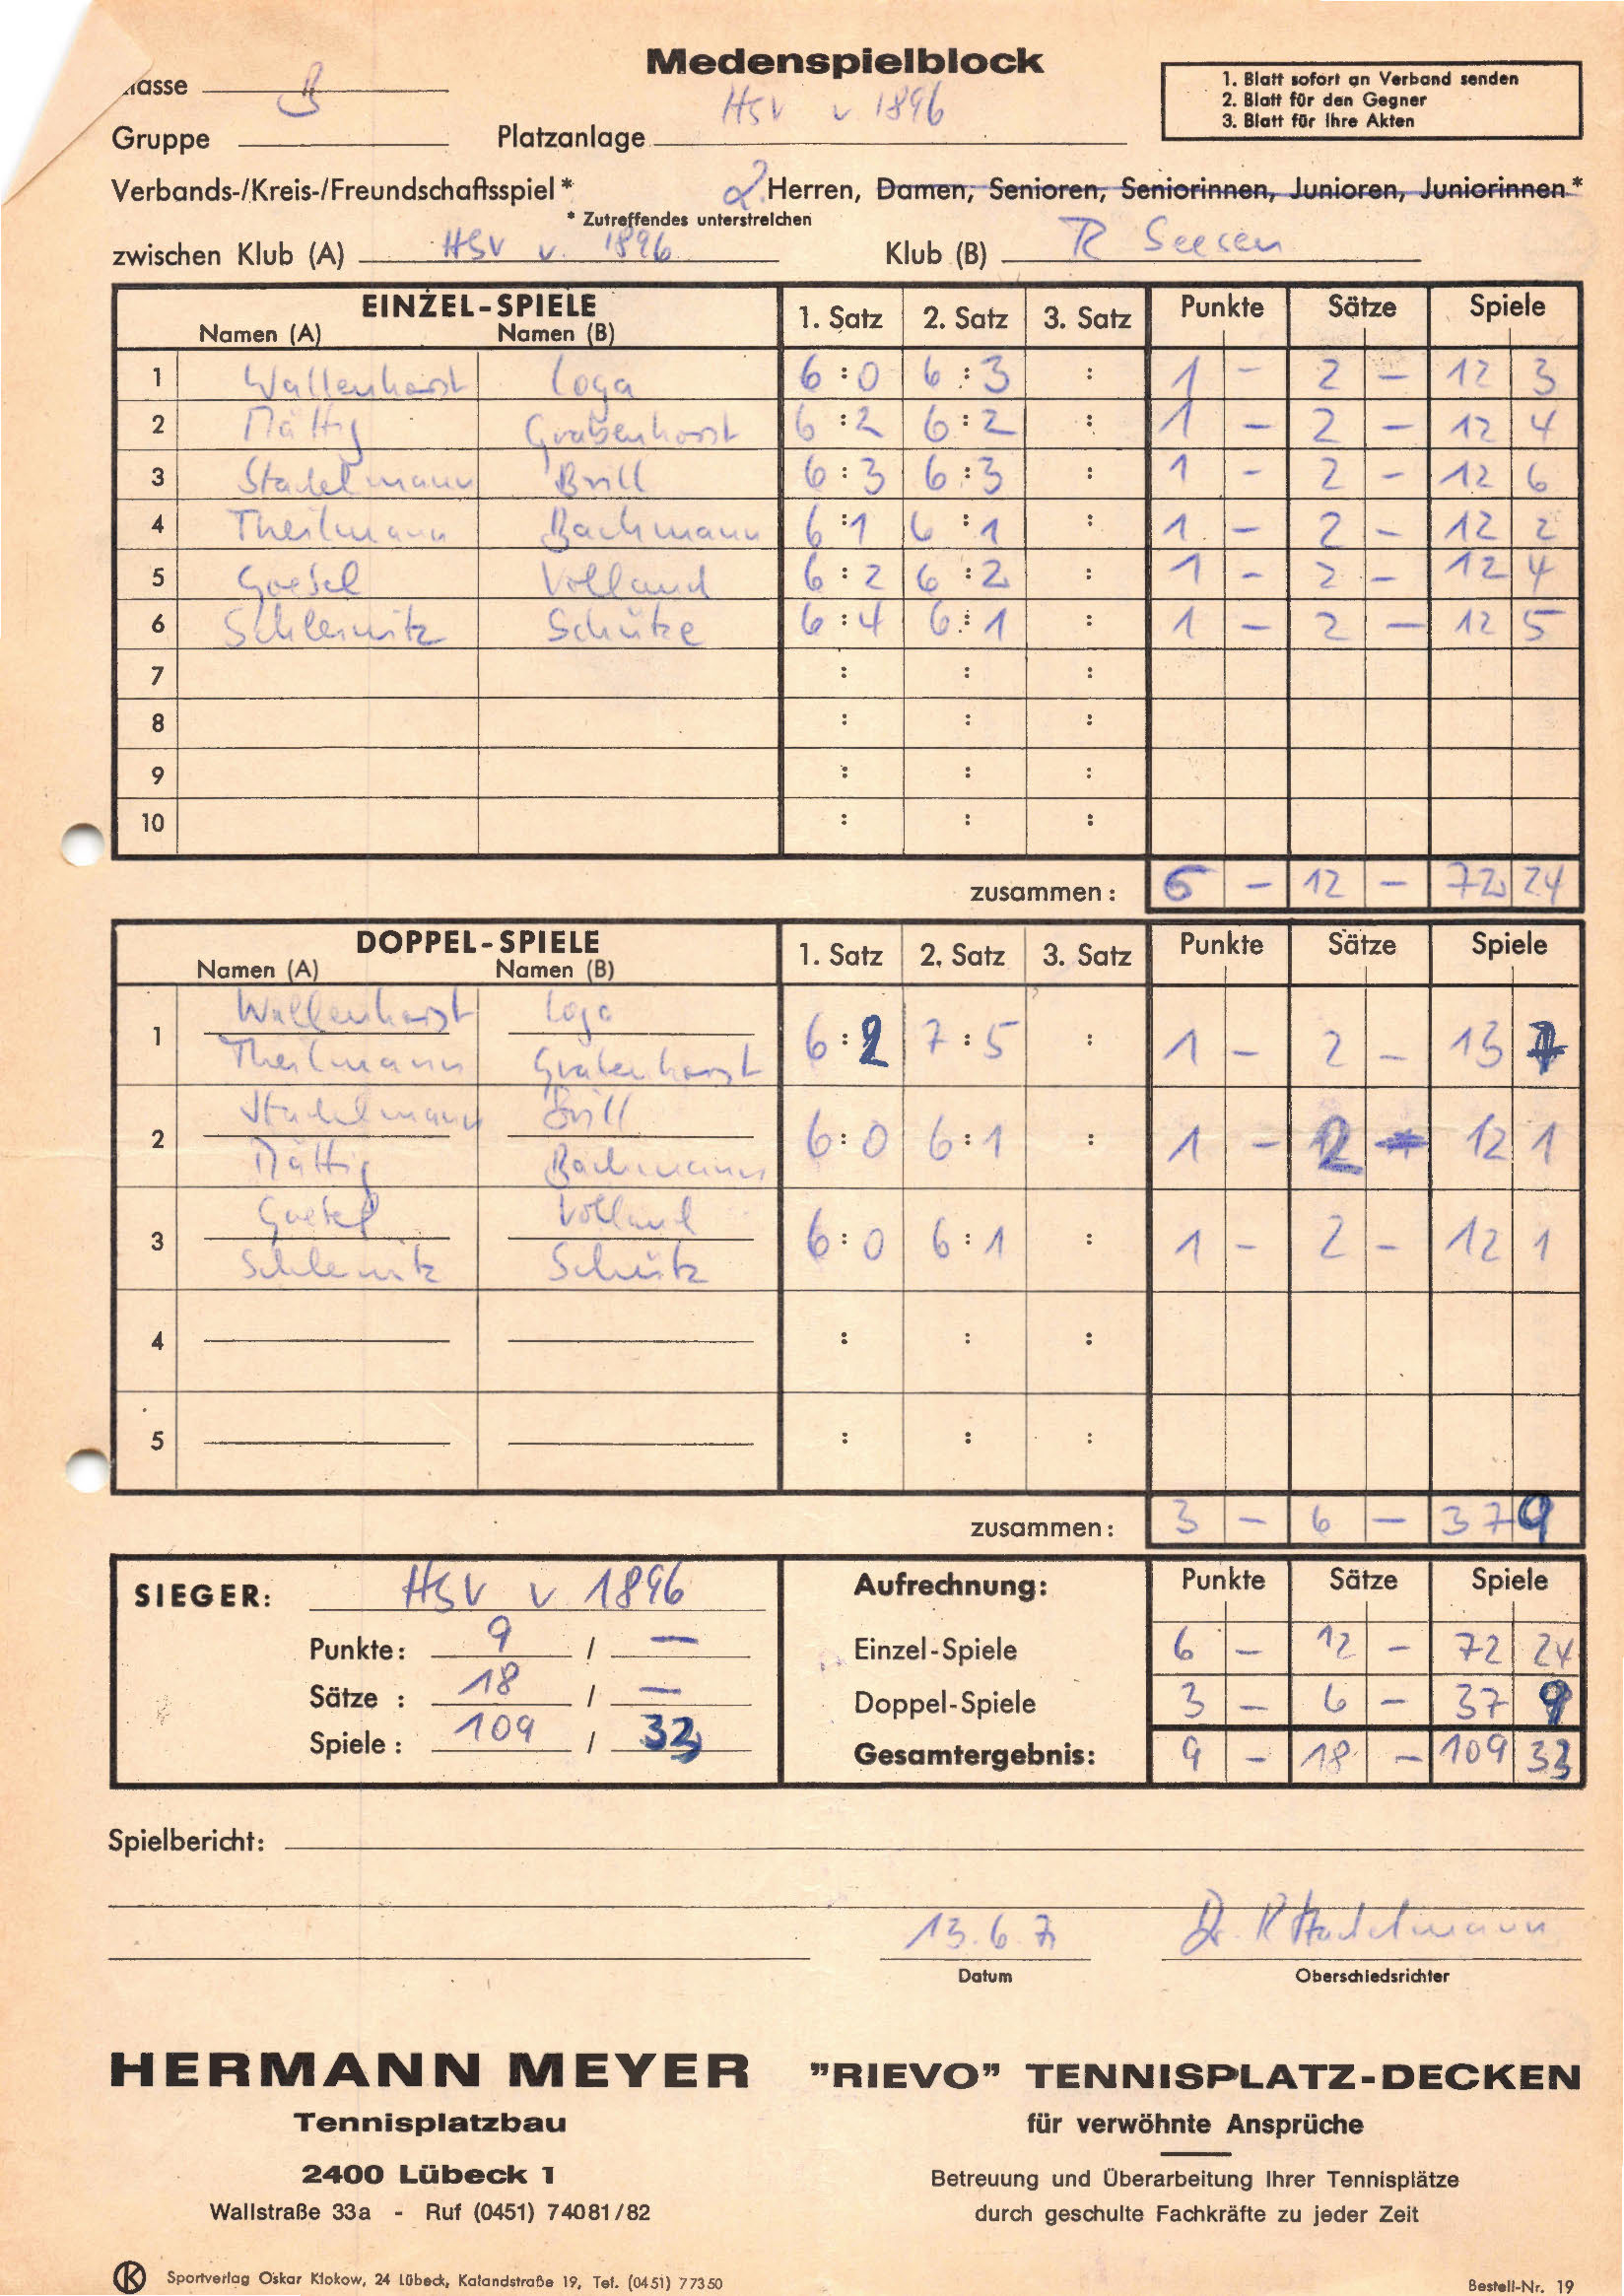 Medenspielblock
1. Blatt sofort an Verband senden
2. Blatt für den Gegner
3. Blatt für Ihre Akten
lasse B
Gruppe Platzanlage HSV v 1896
Verbands-/Kreis-/Freundschaftsspiel* 2. Herren, Damen, Senioren, Seniorinnen, Junioren, Juniorinnen*
* Zutreffendes unterstreichen
zwischen Klub (A) HSV v. 1896 Klub (B) TC Seesen
EINZEL-SPIELE 1. Satz 2. Satz 3. Satz Punkte Sätze Spiele
Namen (A) Namen (B)
1 Wallenhorst Loga 6:0 6:3 : 1 - 2 - 12 3
2 Mättig Grabenhorst 6:2 6:2 : 1 - 2 - 12 4
3 Stadelmann Brill 6:3 6:3 : 1 - 2 - 12 6
4 Theilmann Bachmann 6:1 6:1 : 1 - 2 - 12 2
5 Goesel Volland 6:2 6:2 : 1 - 2 - 12 4
6 Schleinitz Schütze 6:4 6:1 : 1 - 2 - 12 5
7 : : :
8 : : :
9 : : :
10 : : :
zusammen: 6 - 12 - 72 24
DOPPEL-SPIELE 1. Satz 2. Satz 3. Satz Punkte Sätze Spiele
Namen (A) Namen (B)
Wallenhorst Loga
1 6:2 7:5 : 1 - 2 - 13 7
Theilmann Grabenhorst
Stadelmann Brill
2 6:0 6:1 : 1 - 2 - 12 1
Mättig Bachmann
Goesel Volland
3 6:0 6:1 : 1 - 2 - 12 1
Schleinitz Schütz
4 : : :
5 : : :
zusammen: 3 - 6 - 37 9
SIEGER: HSV v 1896 Aufrechnung: Punkte Sätze Spiele
Punkte: 9 / - Einzel-Spiele 6 - 12 - 72 24
Sätze : 18 / - Doppel-Spiele 3 - 6 - 37 9
Spiele : 109 / 33 Gesamtergebnis: 9 - 18 - 109 33
Spielbericht:
13.6.7 Dr. R Stadelmann
Datum Oberschiedsrichter
HERMANN MEYER "RIEVO" TENNISPLATZ-DECKEN
Tennisplatzbau für verwöhnte Ansprüche
2400 Lübeck 1 Betreuung und Überarbeitung Ihrer Tennisplätze
Wallstraße 33a - Ruf (0451) 74081/82 durch geschulte Fachkräfte zu jeder Zeit
K Sportverlag Oskar Klokow, 24 Lübeck, Kalandstraße 19, Tel. (0451) 77350 Bestell-Nr. 19